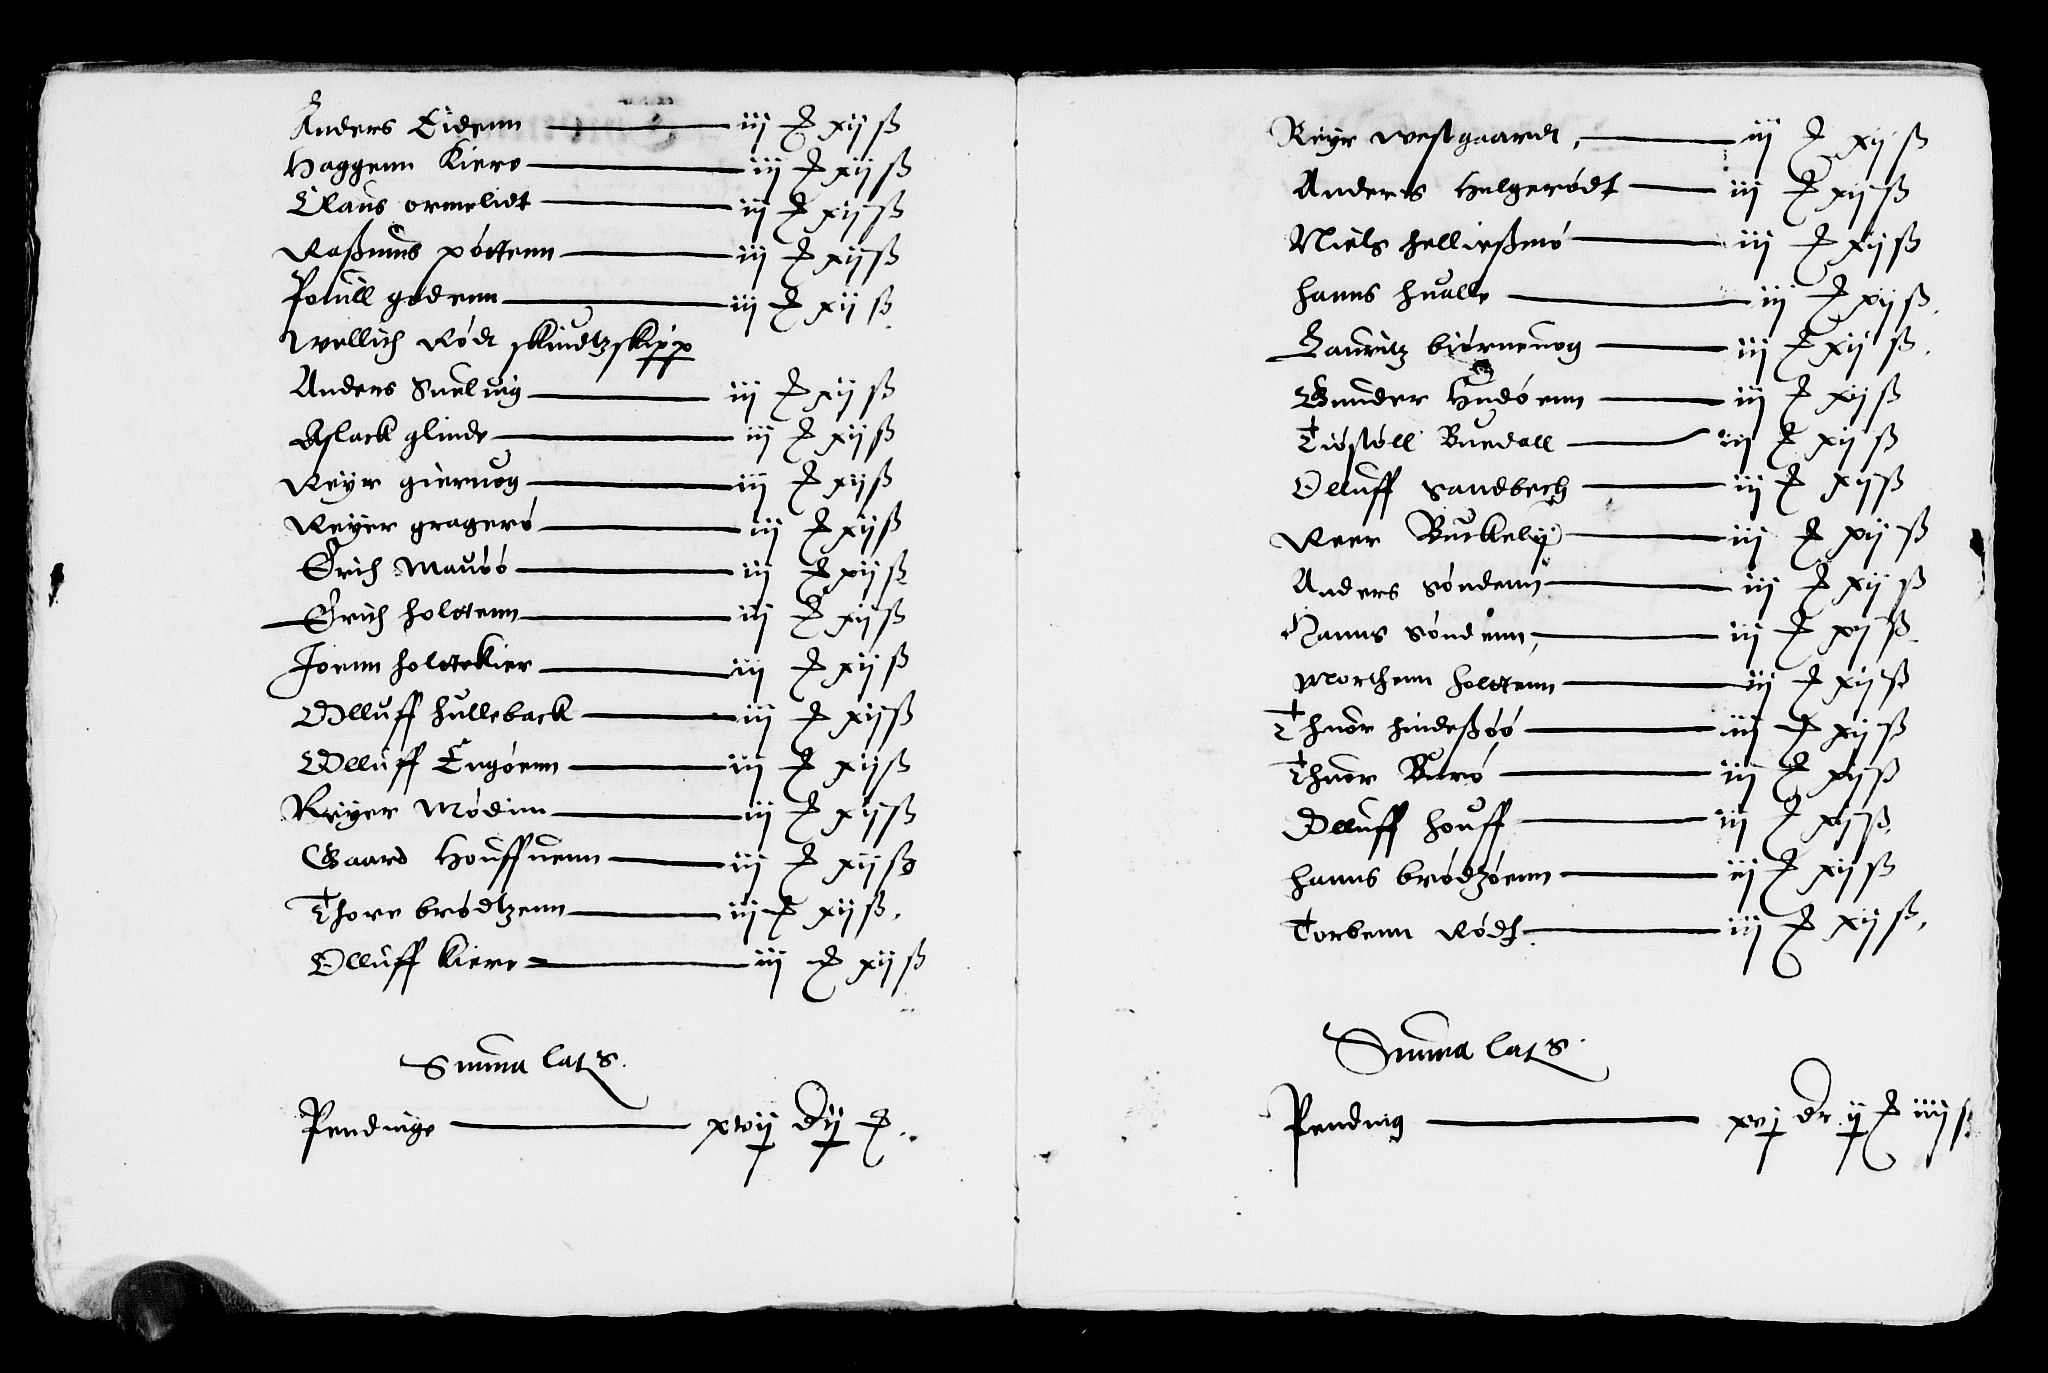 Anders Eidenn — iij ₰ xij ß
Haggenn Kiere — iij ₰ xij ß
Claus ormelidt — iij ₰ xij ß
Raßmus pøttenn — iij ₰ xij ß
Pouill godenn — iij ₰ xij ß
Wellich Rødt skindtzskipp
Anders Sneluig — iij ₰ xij ß
Aslack glinde — iij ₰ xij ß
Reyr gieruog — iij ₰ xij ß
Reyer gragerø — iij ₰ xij ß
Erich Mauøø — iij ₰ xij ß
Erich holttenn — iij ₰ xij ß
Joenn holttekier — iij ₰ xij ß
Olluff hulleback — iij ₰ xij ß
Olluff Engøenn — iij ₰ xij ß
Reyer Mødinn — iij ₰ xij ß
Gaard Houffuenn — iij ₰ xij ß
Thore brødtzenn — iij ₰ xij ß.
Olluff Kiere — iij ₰ xij ß
Summa lats.
Pendinge — xvij dr ij ₰.
Reyr westgaardt, — iij ₰ xij ß
Anders Helgerødt — iij ₰ xij ß
Niels helließmø — iij ₰ xij ß
hanns hualle — iij ₰ xij ß.
Lauritz biørneuog — iij ₰ xij ß.
Gunder Hudøenn — iij ₰ xij ß
Tiøstøll Buedall — iij ₰ xij ß
Olluff Sandbech — iij ₰ xij ß
Reer Buckelij — iij ₰ xij ß
Anders Søndenn — iij ₰ xij ß
Hanns Søndenn, — iij ₰ xij ß.
Morthenn holttenn — iij ₰ xij ß
Thuor hindeßøø — iij ₰ xij ß
Thuor Burø — iij ₰ xij ß
Olluff houff — iij ₰ xij ß.
hanns brødtzøenn — iij ₰ xij ß
Torbenn Rødt. — iij ₰ xij ß.
Summa lats.
Pending — xvj dr. ij ₰ iiij ß